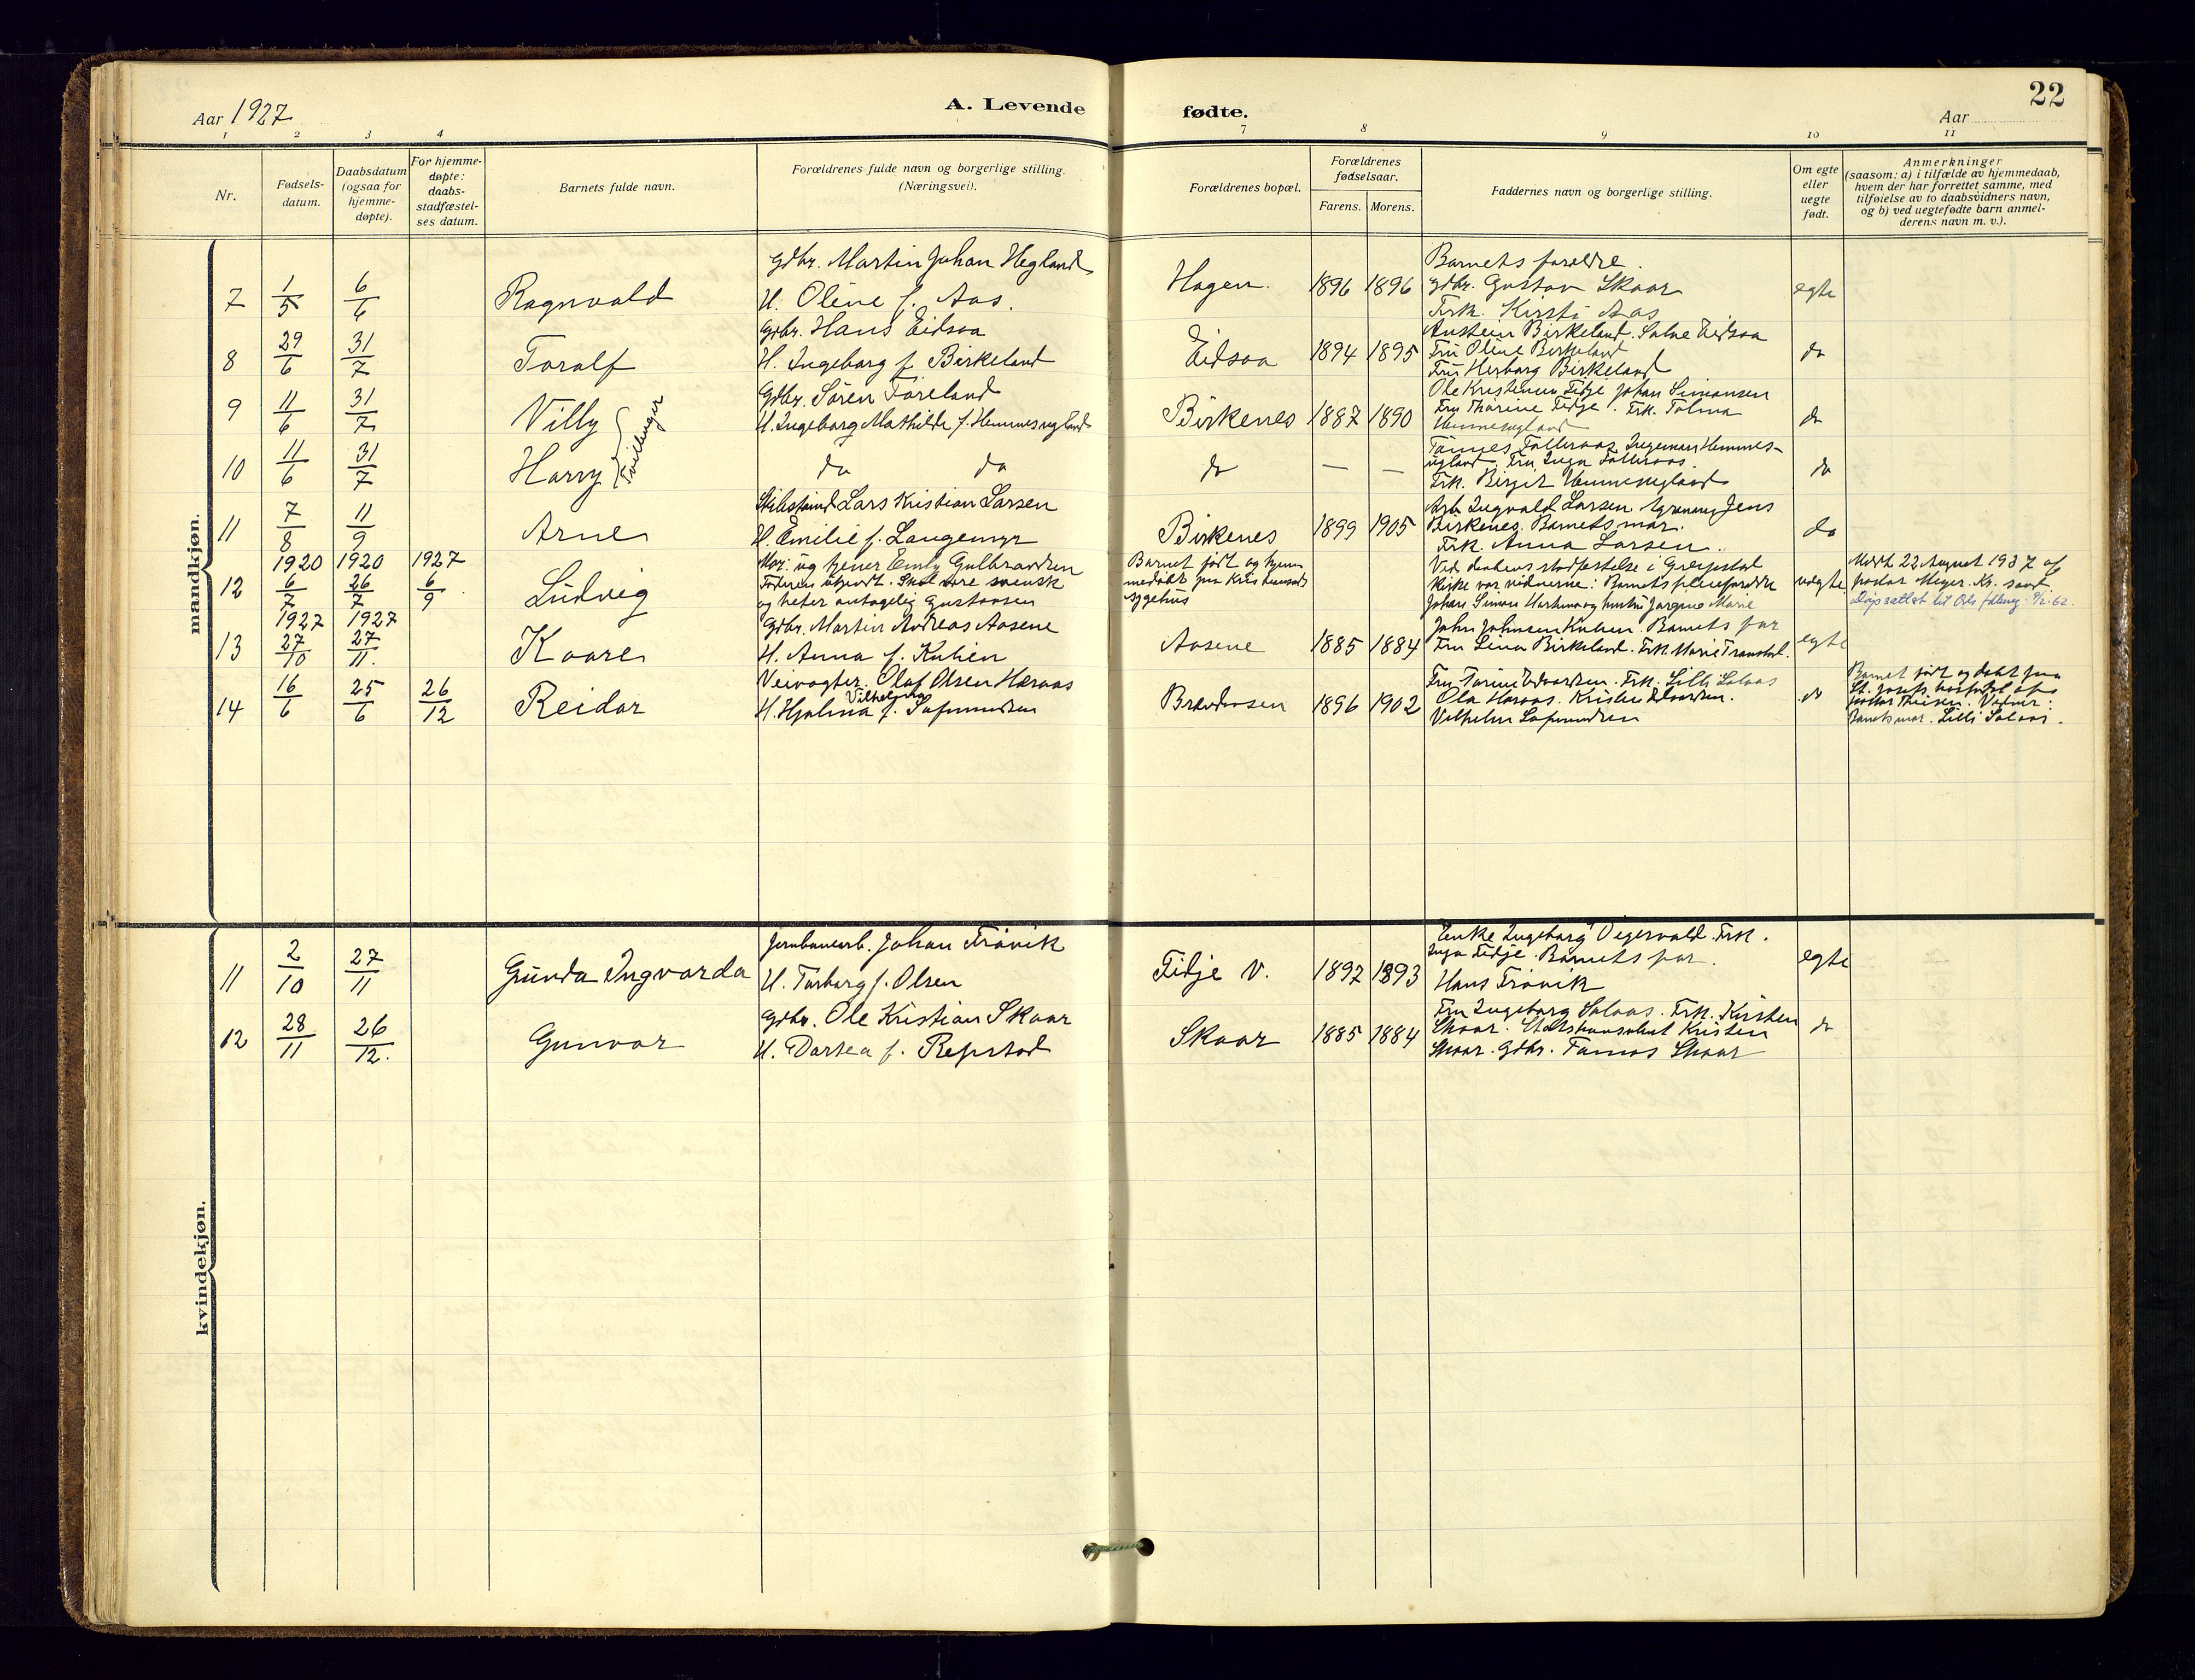 Aar 1927
A. Levende
fødte.
22
Aar
1 2 3 4 7 8 9 10 11
Nr.
Fødsels-
datum.
Daabsdatum
(ogsaa for
hjemme-
døpte).
For hjemme-
døpte:
daabs-
stadfæstel-
ses datum.
Barnets fulde navn.
Forældrenes fulde navn og borgerlige stilling.
(Næringsvei).
Forældrenes bopæl.
Forældrenes
fødselsaar.
Farens. Morens.
Faddernes navn og borgerlige stilling.
Om egte
eller
uegte
født.
Anmerkninger
(saasom: a) i tilfælde av hjemmedaab,
hvem der har forrettet samme, med
tilføielse av to daabsvidners navn,
og b) ved uegtefødte barn anmel-
derens navn m. v.).
mandkjøn.
7 1/5 6/6 Ragnvald
Gdbr. Martin Johan Hegland
H. Oline f. Aas.
Hagen. 1896 1896
Barnets forældre.
Gdbr. Gustav Skaar
Frk. Kirsti Aas
egte
8 29/6 31/7 Toralf
Gdbr. Hans Eidsaa
H. Ingeborg f. Birkeland
Eidsaa 1894 1895
Anstein Birkeland. Salve Eidsaa
Fru Oline Birkeland
Fru Herborg Birkeland
do
9 11/6 31/7 Villy
Tvillinger
Gdbr. Sören Föreland
H. Ingeborg Mathilde f. Hemmesugland
Birkenes 1887 1890
Ole Kristensen Tidje Johan Simonsen
Fru Thorine Tidje. Frk. Tolma
Hemmesugland
do
10 11/6 31/7 Harry
do do
do — —
Tönnes Tolleraas Ingeman Hemmes-
ugland. Fru Inga Tolleraas.
Frk. Birgit Hemmesugland
do
11 7/8 11/9 Arne
Lars Kristian Larsen
H. Emilie f. Langemyr
Birkenes 1899 1905
Arb. Ingvald Larsen. Jens
Birkenes. Barnets mor.
Frk. Anna Larsen.
do
1920 1920 1927
12 6/7 26/7 6/9 Ludvig
Mor: ug tjener Emly Gulbrandsen
Faderen ukjendt. Skal være svensk
og heter antagelig Gustavsen
Barnet født og hjem
medøbt paa Kristiansands
sygehus
Ved daabens stadfestelse i Greipstad
kirke var vidnerne: Barnets pleieforældre
Johan Simon og hustru Jørgine Marie
uegte
Meldt 22 August 1937 af
pastor Meyer. Kr. sand
til Oslo 9/2-62.
1927 1927
13 27/10 27/11. Kaare
Gdbr. Martin Andreas Aasene
H. Anna f. Kulien
Aasene 1885 1884
John Johnsen Kulien. Barnets far
Fru Lina Birkeland. Frk. Marie
egte
14 16/6 25/6 26/12 Reidar
Veivogter. Olaf Olsen Heraas
Vilhelmina
H. Hjalma f. Tofmundsen
1896 1902
Fru Torine Edvardsen. Frk. Lilli Salaas
Ola Heraas. Kristen Edvardsen.
Vilhelm
do
Barnet født og døbt paa
St. Josefs hospital af
pastor Thiesen. Vidner:
Barnets mor. Lilli Salaas.
kvindekjøn.
11 2/10 27/11 Gunda Ingvarda
Jernbanearb. Johan Frövik
H. Torborg f. Olsen
Tidje V. 1892 1893
Enke Ingeborg Vegervold. Frk.
Inga Tidje. Barnets far.
Hans Frövik
egte
12 28/11 26/12. Gunvor
Gdbr. Ole Kristian Skaar
H. Dortea f. Repstad
Skaar 1885 1884
Fru Ingeborg Salaas. Frk. Kirsten
Skaar. Statskonsulent Kristen
Skaar. Gdbr. Tomas Skaar
do